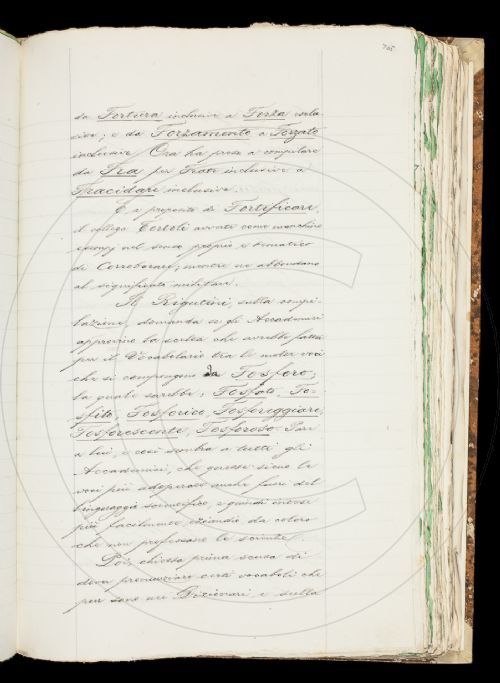 705
da Fortura inclusive a Forza esclu-
sive; e da Forzamento a Forzato
inclusive. Ora ha preso a compilare
da Fra per Frate inclusive a
Fracidare inclusive.
E a proposito di Fortificare,
il collega Tortoli avverte come manchino
esempj nel senso proprio e
di Corroborare, mentre ne abbondano
al significato militare.
Il Rigutini, sulla compi-
lazione, domanda se gli Accademici
approvino la scelta che avrebbe fatta
per il Vocabolario tra le molte voci
che si compongono da Fosforo;
la quale sarebbe: Fosfato, Fo-
sfito, Fosforico, Fosforeggiare,
Fosforescente, Fosforoso. Pare
a lui, e così sembra a tutti gli
Accademici, che queste sieno le
voci più adoperate anche fuori del
linguaggio scientifico, e quindi intese
più facilmente eziandio da coloro
che non professano le scienze.
Poi, chiesta prima scusa di
dover pronunziare certi vocaboli che
pur sono nei Dizionari, e sulla